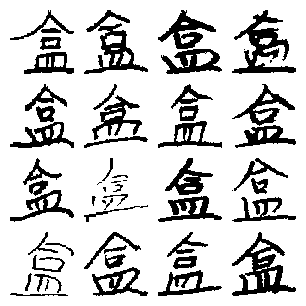 盒盒盒盒
盒盒盒盒
盒盒盒盒
盒盒盒盒